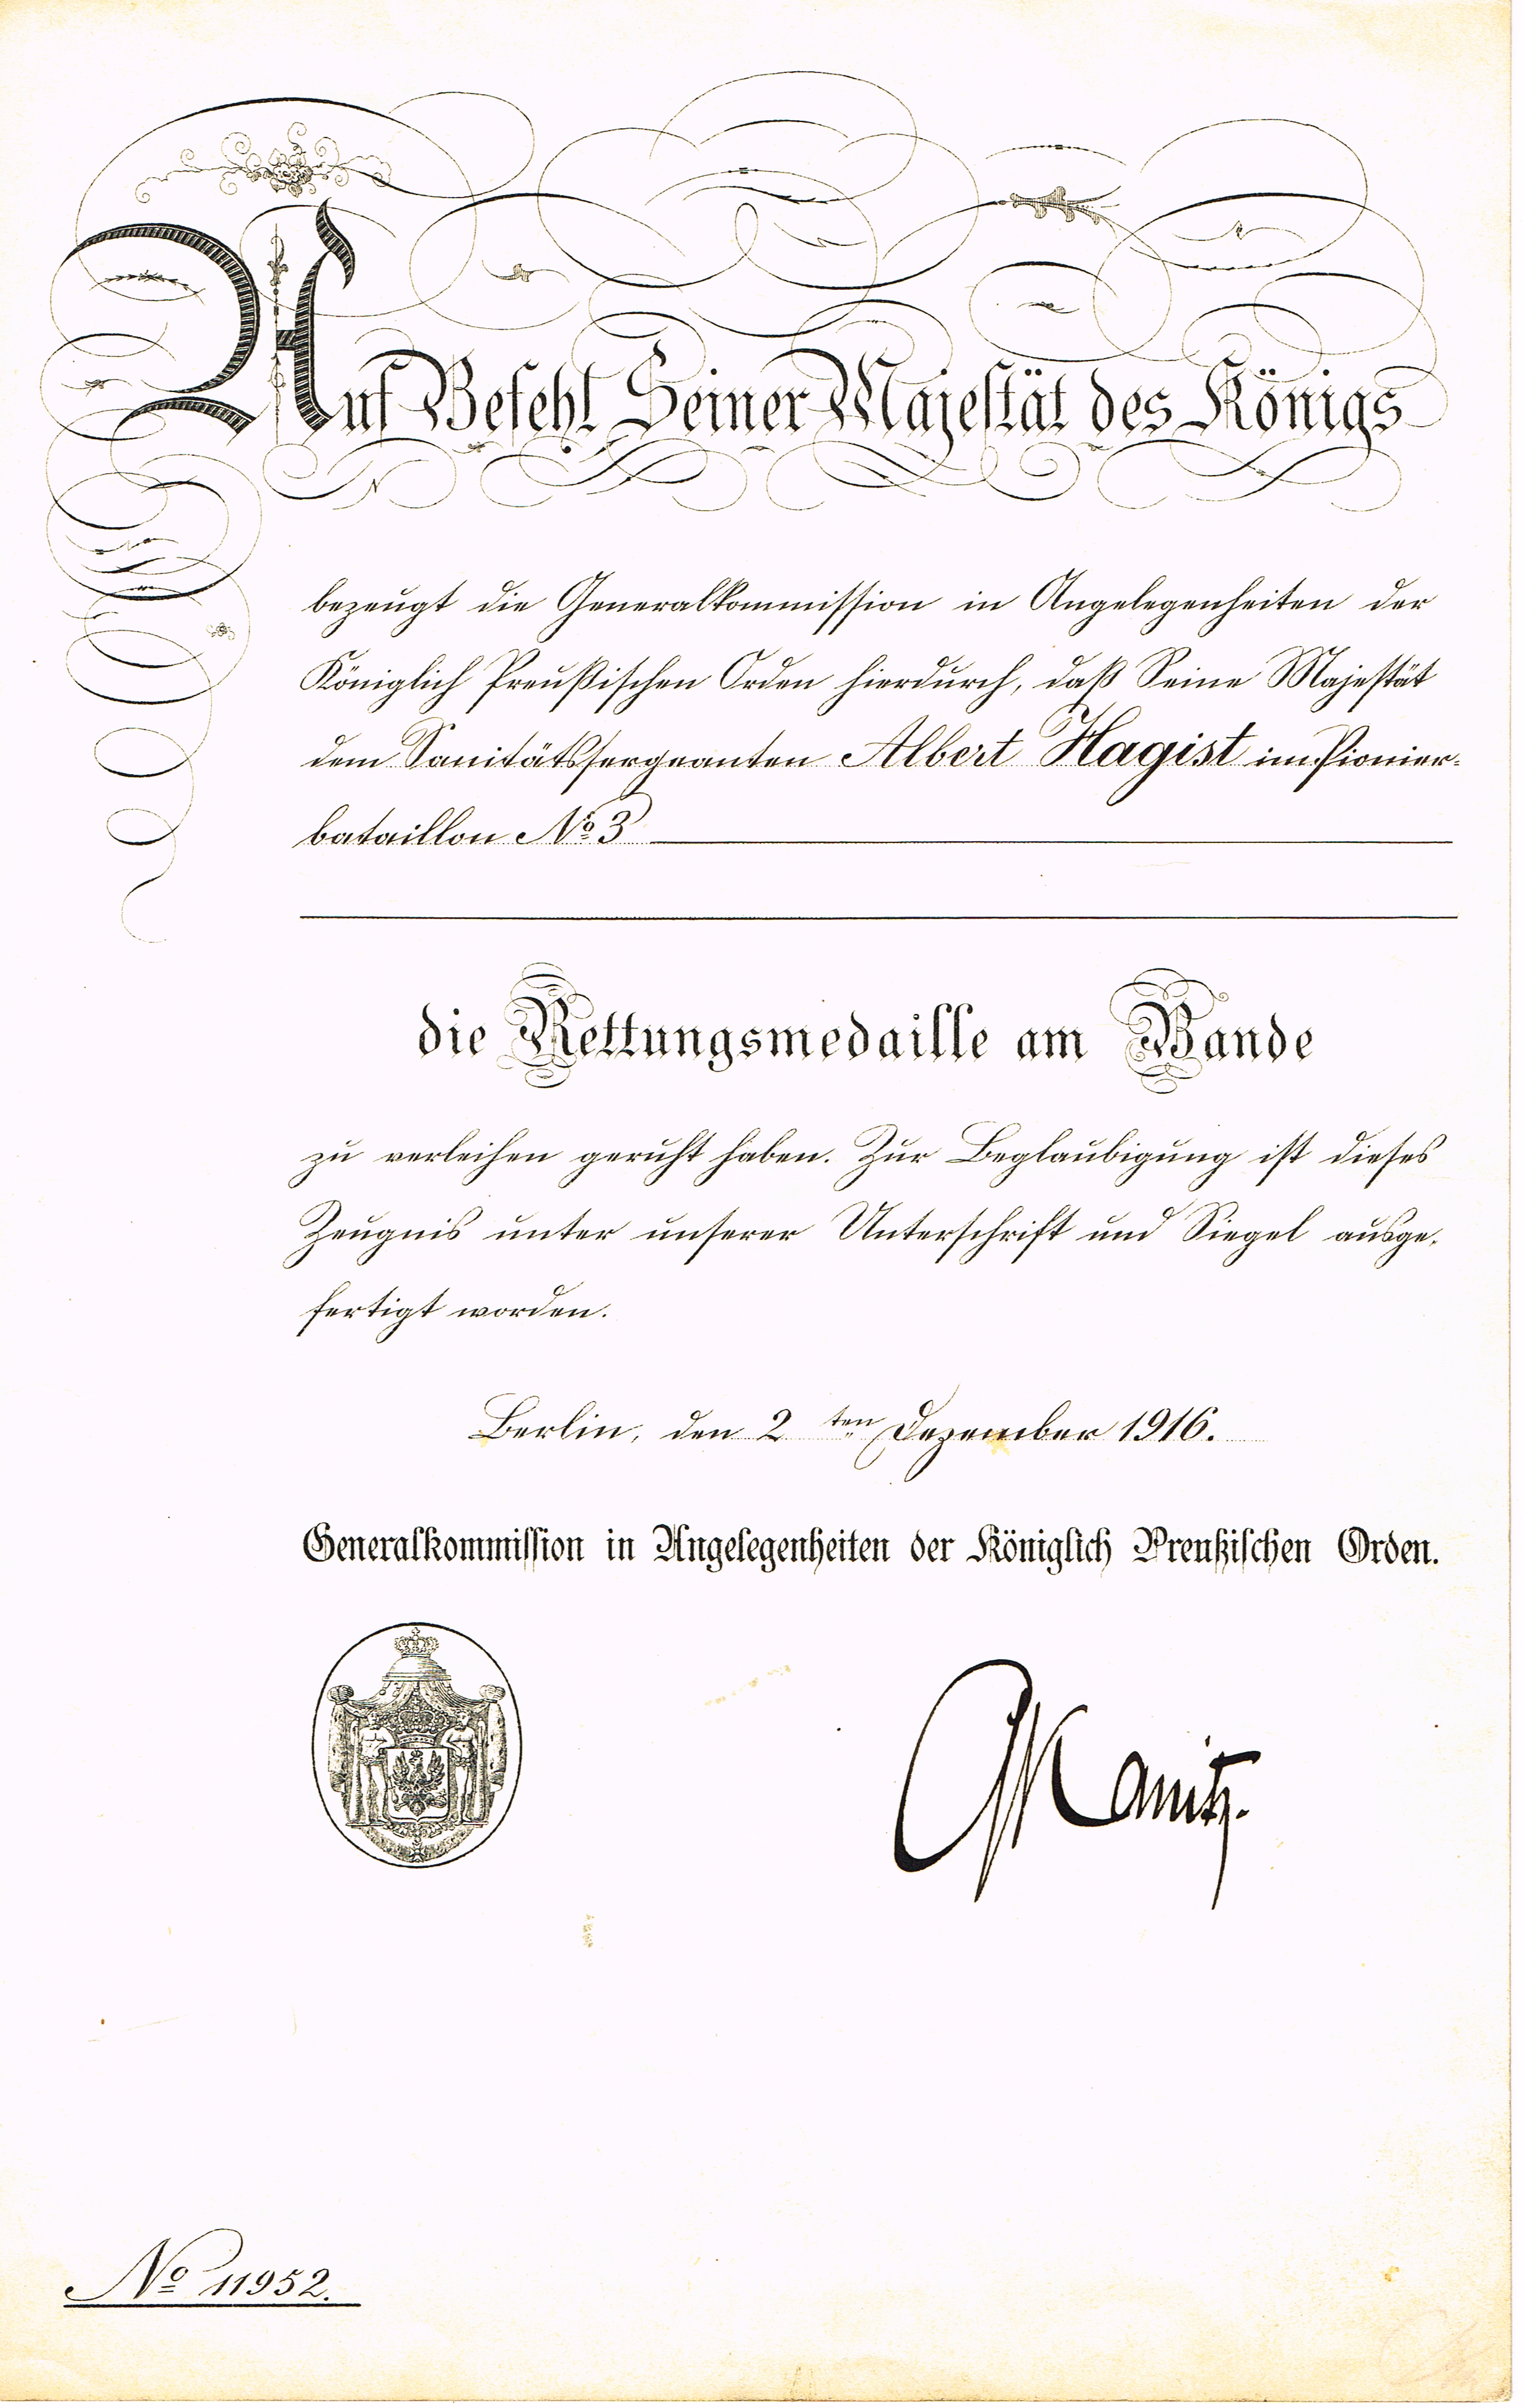 Auf Befehl Seiner Majestät des Königs
bezeugt die Generalkommission in Angelegenheiten der
Königlich Preußischen Orden hierdurch, daß Seine Majestät
dem Sanitätssergeanten Albert Hagist im Pionier-
bataillon № 3
die Rettungsmedaille am Bande
zu verleihen geruht haben. Zur Beglaubigung ist dieses
Zeugnis unter unserer Unterschrift und Siegel ausge-
fertigt worden.
Berlin, den 2ten Dezember 1916.
Generalkommission in Angelegenheiten der Königlich Preußischen Orden.
Kanitz.
№ 11952.